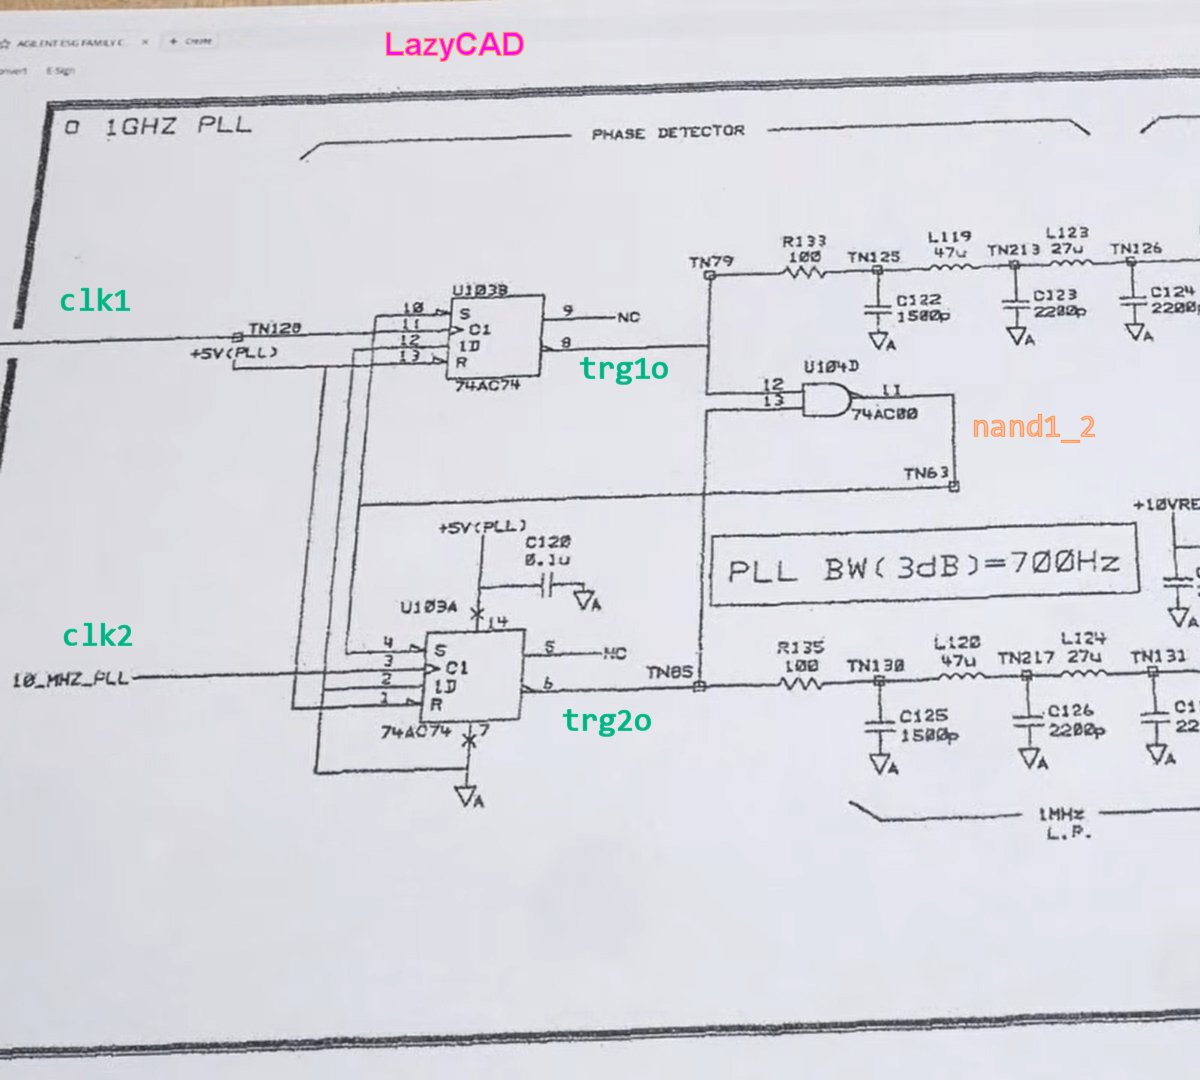 AGILENT ESG FAMILY C × + Create
LazyCAD
E-Sign
1GHZ PLL
PHASE DETECTOR
R133
100
L119
47u
L123
27u
TN79
TN125
TN213
TN126
C122
1500p
C123
2200p
C124
2200p
A
A
A
clk1
U103B
10
11
12
13
S
C1
1D
R
9
NC
8
74AC74
TN120
+5V(PLL)
trg1o
U104D
12
13
11
74AC00
nand1_2
TN63
+5V(PLL)
C120
0.1u
A
+10VRE
PLL BW(3dB)=700Hz
A
clk2
U103A
14
10_MHZ_PLL
4
3
2
1
S
C1
1D
R
5
NC
6
74AC74
7
A
trg2o
TN85
R135
100
TN130
L120
47u
TN217
L124
27u
TN131
C125
1500p
C126
2200p
C1
22
A
A
A
1MHz
L.P.